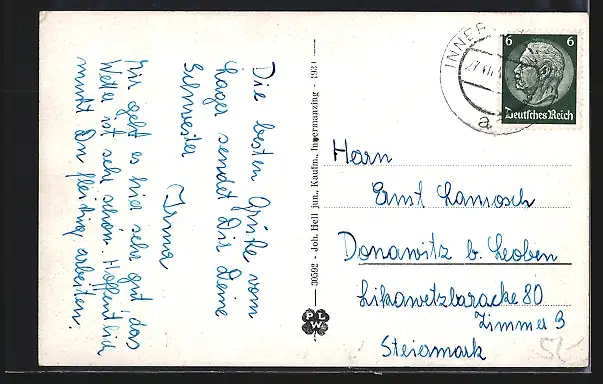 Die besten Grüße vom
Lager sendet Dir Deine
Schwester
Irma
Mir geht es hier sehr gut, das
Wetter ist sehr schön. Hoffentlich
mußt Du fleißig arbeiten.
30592 - Joh. Hell jun., Kaufm., Innermanzing - 193
PLW
INNER
a
6 6
Deutsches Reich
Herrn
Ernst Lamosch
Donawitz b. Leoben
Likawetzbaracke 80
Zimmer 9
Steiermark